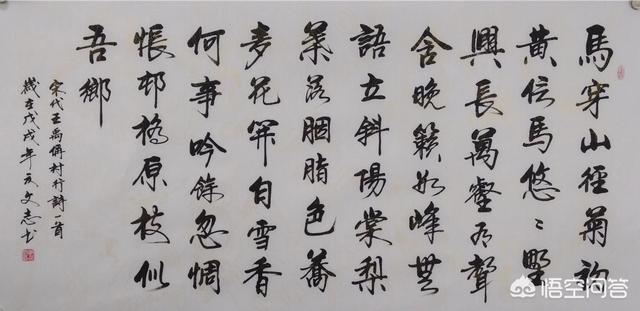 馬穿山徑菊初
黄信馬悠〻野
興長萬壑有聲
含晚籟數峰無
語立斜陽棠梨
葉落胭脂色蕎
麥花開白雪香
何事吟餘忽惆
悵邨橋原樹似
吾鄉
宋代王禹偁村行詩一首
歲在戊戌年夏文志书
悟空问答